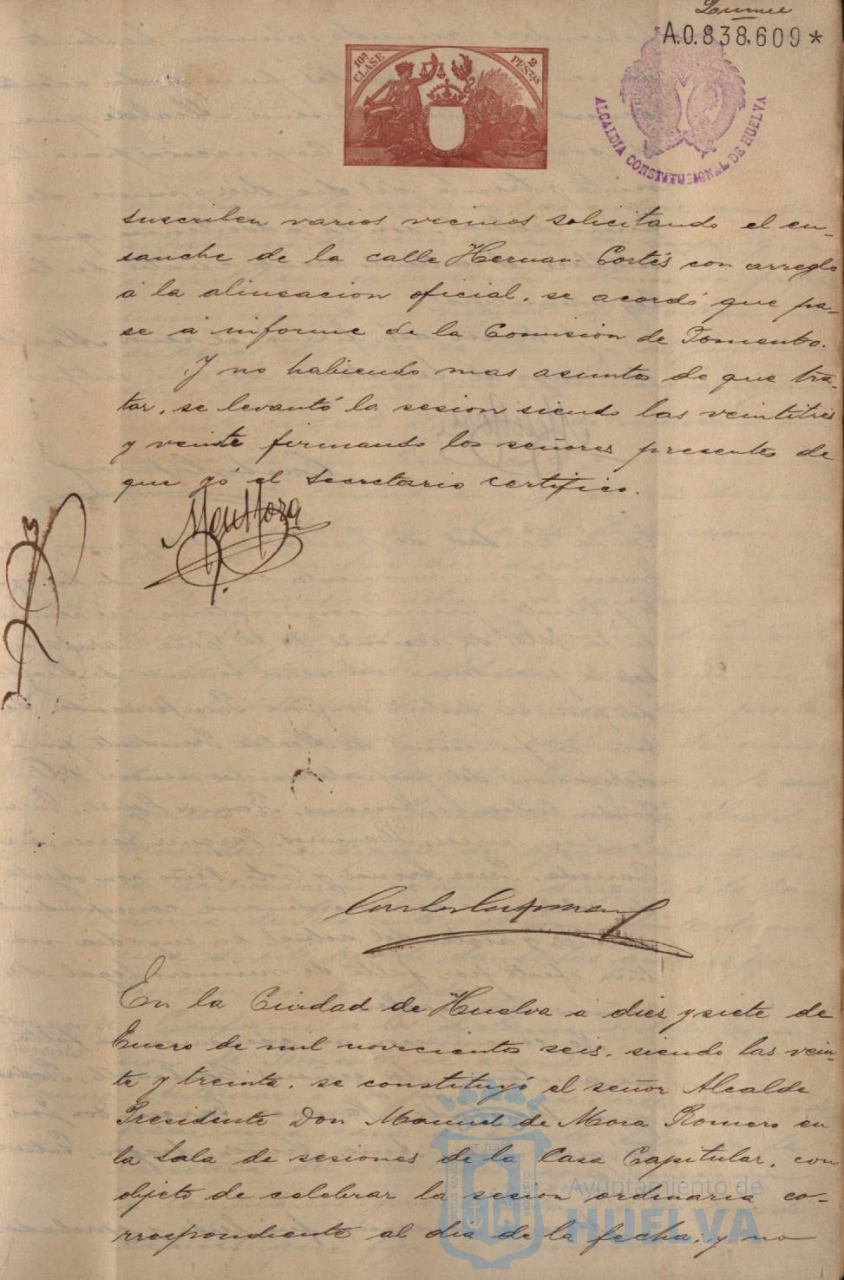 A.0.838,609*
10ª CLASE
2 PESTAS
ALCALDIA CONSTITUCIONAL DE HUELVA
suscriben varios vecinos solicitando el en-
sanche de la calle Hernan-Cortés con arreglo
á la alineacion oficial, se acordó que pa-
se á informe de la Comision de Fomento.
Y no habiendo mas asuntos de que tra-
tar, se levantó la sesion siendo las veintitres
y veinte firmando los señores presentes de
que yó el Secretario certifico.
En la Ciudad de Huelva á diez y siete de
Enero de mil novecientos seis, siendo las vein-
te y treinta, se constituyó el señor Alcalde
Presidente Don Manuel de Mora Romero en
la Sala de sesiones de la Casa Capitular, con
objeto de celebrar la sesion ordinaria co-
rrespondiente al dia de la fecha, y no
Ayuntamiento de
HUELVA